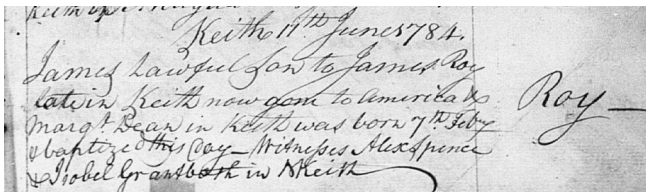 Keith 11th June 1784.
James Lawful Son to James Roy
late in Keith now gone to America &
Margt. Dean in Keith was born 7th Febry
& baptized this day — Witnesses Alexr Spence
& Isobel Grant both in NKeith
Roy —